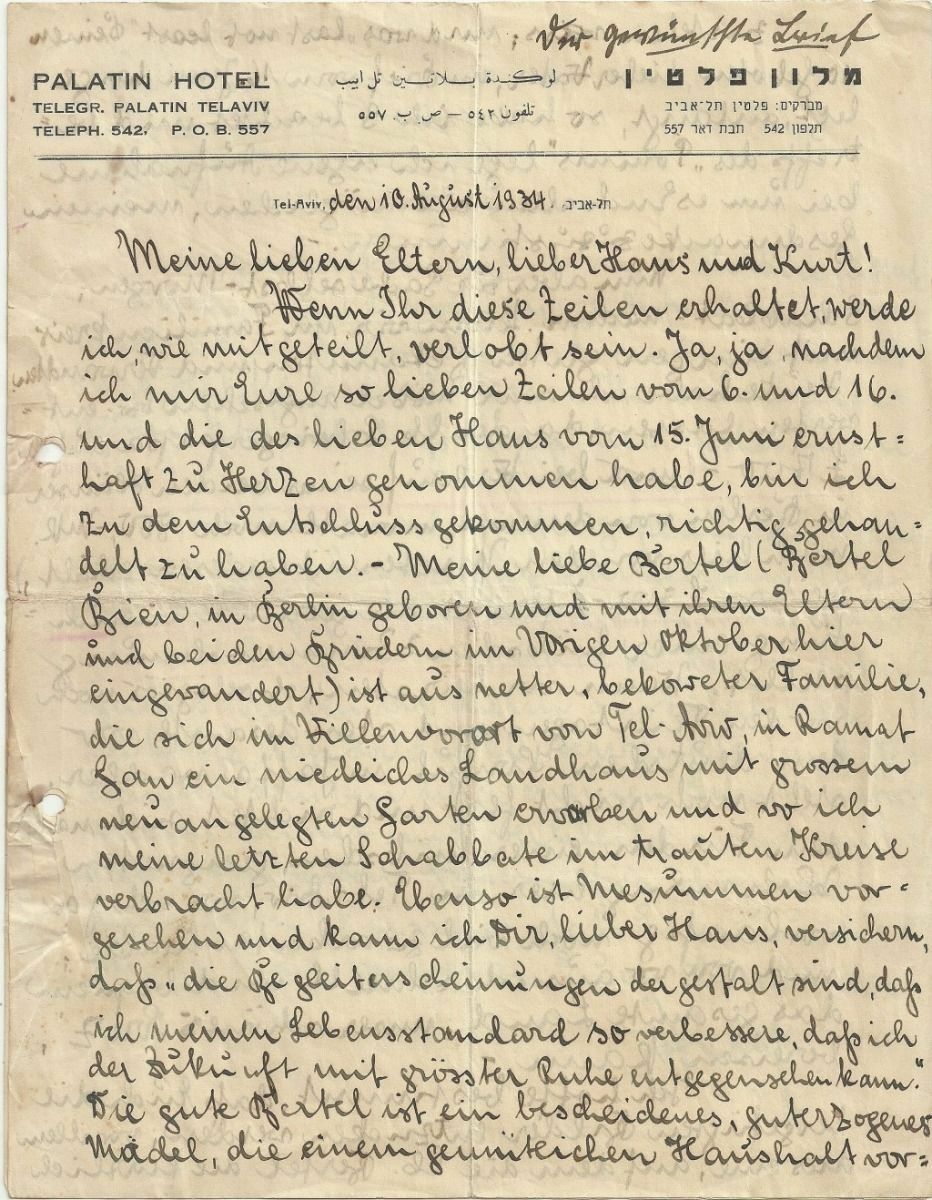 Der gewünschte Brief
PALATIN HOTEL
TELEGR. PALATIN TELAVIV
TELEPH. 542. P. O. B. 557
لوكندة بلاتين تل ابيب
تلفون ٥٤٢ – ص. ب. ٥٥٧
מלון פלטין
מברקים: פלטין תל-אביב
תלפון 542 תבת דאר 557
Tel-Aviv, den 10. August 1934. תל-אביב
Meine lieben Eltern, lieber Hans und Kurt!
Wenn Ihr diese Zeilen erhaltet, werde
ich, wie mitgeteilt, verlobt sein. Ja, ja, nachdem
ich mir Eure so lieben Zeilen vom 6. und 16.
und die des lieben Hans vom 15. Juni ernst=
haft zu Herzen genommen habe, bin ich
zu dem Entschluss gekommen, richtig gehan=
delt zu haben. - Meine liebe Bertel (Bertel
Bien, in Berlin geboren und mit ihren Eltern
und beiden Brüdern im Vorigen Oktober hier
eingewandert) ist aus netter, bekoweter Familie,
die sich im Villenvorort von Tel-Aviv, in Ramat
Gan ein niedliches Landhaus mit grossem
neu angelegten Garten erworben und wo ich
meine letzten Schabbate im trauten Kreise
verbracht habe. Ebenso ist Mesummen vor=
gesehen und kann ich Dir, lieber Hans, versichern,
daß „die Begleiterscheinungen dergestalt sind, daß
ich meinen Lebensstandard so verbessere, daß ich
der Zukunft mit grösster Ruhe entgegensehen kann."
Die gute Bertel ist ein bescheidenes, guterzogenes
Mädel, die einem gemütlichen Haushalt vor=